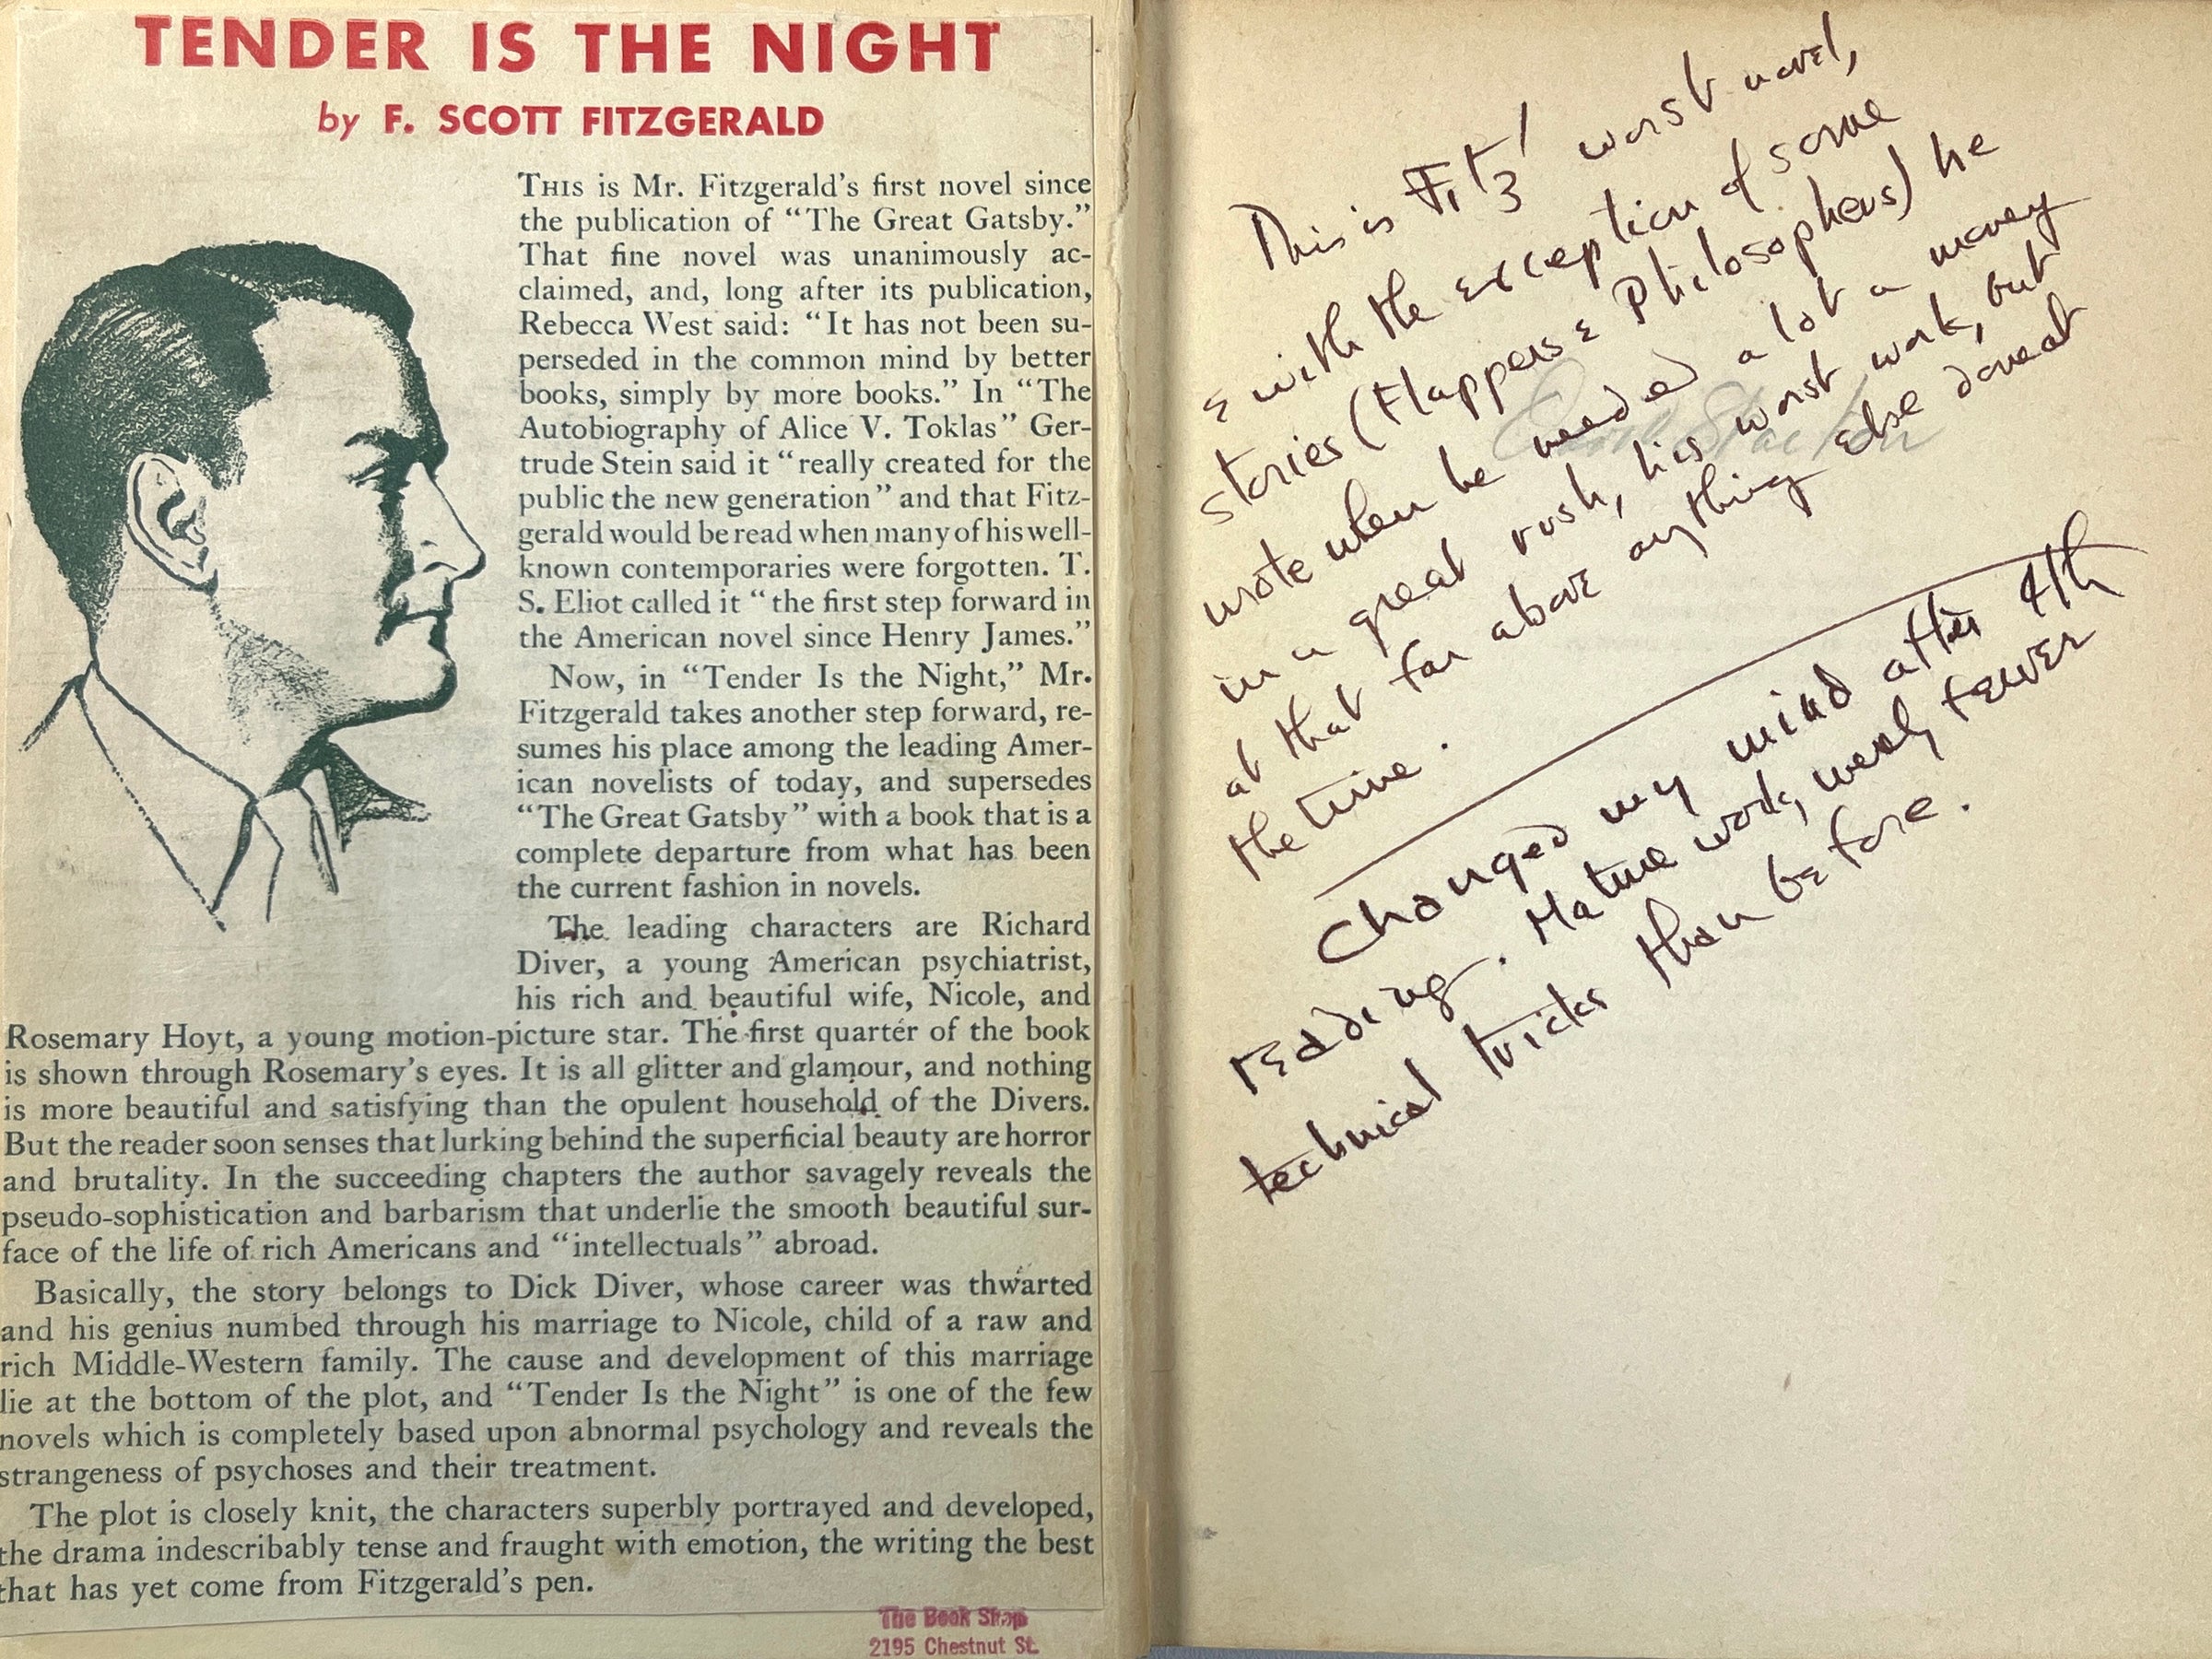 TENDER IS THE NIGHT
by F. SCOTT FITZGERALD
THIS is Mr. Fitzgerald's first novel since
the publication of "The Great Gatsby."
That fine novel was unanimously ac-
claimed, and, long after its publication,
Rebecca West said: "It has not been su-
perseded in the common mind by better
books, simply by more books." In "The
Autobiography of Alice V. Toklas" Ger-
trude Stein said it "really created for the
public the new generation" and that Fitz-
gerald would be read when many of his well-
known contemporaries were forgotten. T.
S. Eliot called it "the first step forward in
the American novel since Henry James."
Now, in "Tender Is the Night," Mr.
Fitzgerald takes another step forward, re-
sumes his place among the leading Amer-
ican novelists of today, and supersedes
"The Great Gatsby" with a book that is a
complete departure from what has been
the current fashion in novels.
The leading characters are Richard
Diver, a young American psychiatrist,
his rich and beautiful wife, Nicole, and
Rosemary Hoyt, a young motion-picture star. The first quarter of the book
is shown through Rosemary's eyes. It is all glitter and glamour, and nothing
is more beautiful and satisfying than the opulent household of the Divers.
But the reader soon senses that lurking behind the superficial beauty are horror
and brutality. In the succeeding chapters the author savagely reveals the
pseudo-sophistication and barbarism that underlie the smooth beautiful sur-
face of the life of rich Americans and "intellectuals" abroad.
Basically, the story belongs to Dick Diver, whose career was thwarted
and his genius numbed through his marriage to Nicole, child of a raw and
rich Middle-Western family. The cause and development of this marriage
lie at the bottom of the plot, and "Tender Is the Night" is one of the few
novels which is completely based upon abnormal psychology and reveals the
strangeness of psychoses and their treatment.
The plot is closely knit, the characters superbly portrayed and developed,
the drama indescribably tense and fraught with emotion, the writing the best
that has yet come from Fitzgerald's pen.
The Book Shop
2195 Chestnut St.
This is Fitz' worst novel,
& with the exception of some
stories (Flappers & Philosophers) he
wrote when he needed a lot a money
in a great rush, his worst work, but
at that far above anything else done at
the time.
Changed my mind after 4th
reading. Mature work, fewer
technical tricks than before.